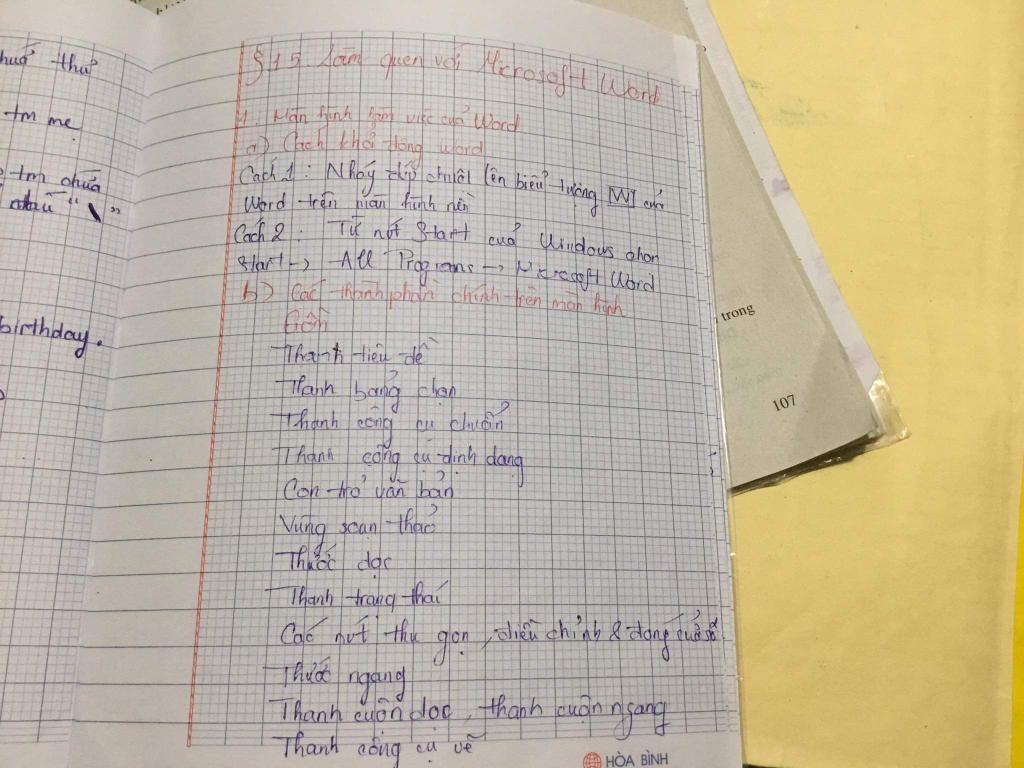 huả thư
tm mẹ
tm chưa
dấu " \ "
birthday.
§15 Làm quen với Microsoft Word
1. Màn hình làm việc của Word
a) Cách khởi động word
Cách 1: Nháy đúp chuột lên biểu tượng [W] của
Word trên màn hình nền
Cách 2: Từ nút Start của Windows chọn
Start → All Programs → Microsoft Word
b) Các thành phần chính trên màn hình
Gồm
Thanh tiêu đề
Thanh bảng chọn
Thanh công cụ chuẩn
Thanh công cụ định dạng
Con trỏ văn bản
Vùng soạn thảo
Thước dọc
Thanh trạng thái
Các nút thu gọn, điều chỉnh & đóng cửa sổ
Thước ngang
Thanh cuộn dọc, thanh cuộn ngang
Thanh công cụ vẽ
HÒA BÌNH
trong
107